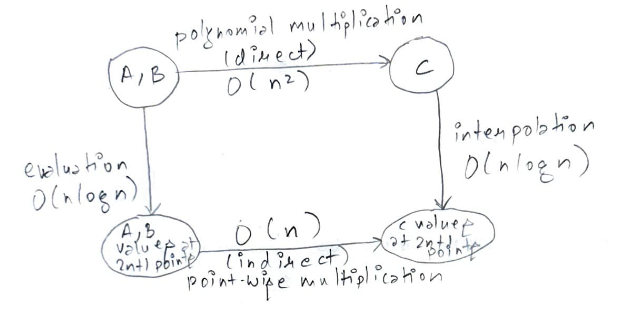 polynomial multiplication
(direct)
A, B
C
O(n²)
interpolation
O(nlogn)
evaluation
O(nlogn)
A, B
values at
2n+1 points
O(n)
(indirect)
point-wise multiplication
C values
at 2n+1
points